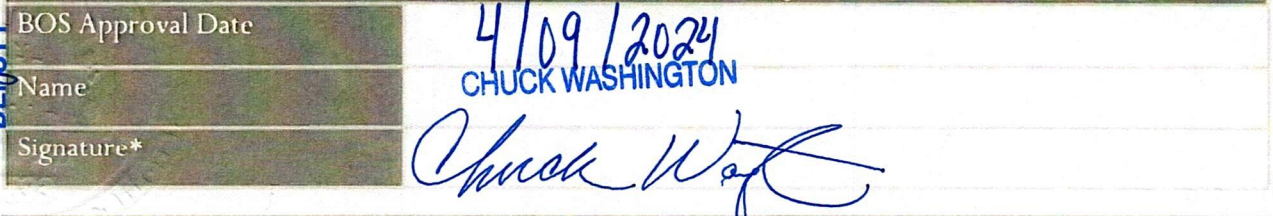 BOS Approval Date 4/09/2024
Name CHUCK WASHINGTON
Signature* Chuck Wash